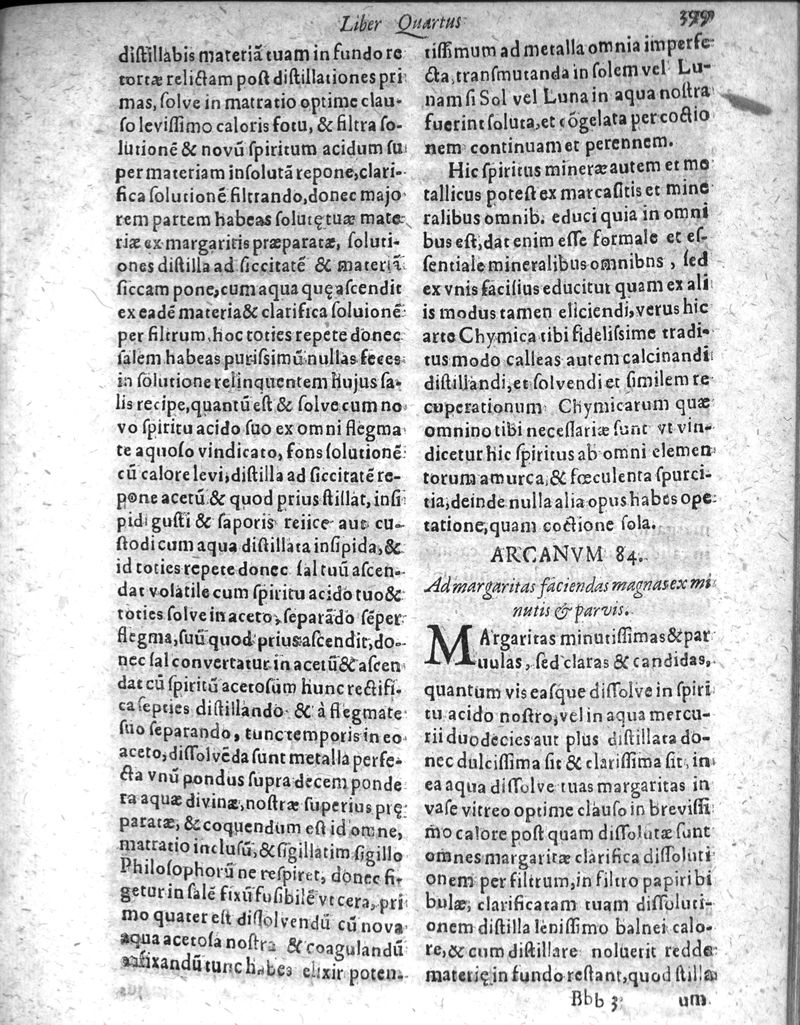 Liber Quartus 399
distillabis materiã tuam in fundo re
tortæ relictam post distillationes pri
mas, solve in matratio optime clau-
so levissimo caloris fotu, & filtra so-
lutionẽ & novũ spiritum acidum su
per materiam insolutã repone, clari-
fica solutionẽ filtrando, donec majo
rem partem habeas solutę tuæ mate-
riæ ex margaritis præparatæ, soluti-
ones distilla ad siccitatẽ & materiã
siccam pone, cum aqua quę ascendit
ex eadẽ materia & clarifica soluionẽ
per filtrum, hoc toties repete donec
salem habeas purissimũ nullas feces
in solutione relinquentem hujus sa-
lis recipe, quantũ est & solve cum no
vo spiritu acido suo ex omni flegma
te aquoso vindicato, fons solutionẽ
cũ calore levi, distilla ad siccitatẽ re-
pone acetũ & quod prius stillat, insi
pidi gusti & saporis reiice aut cu-
stodi cum aqua distillata insipida, &
id toties repete donec sal tuũ ascen-
dat volatile cum spiritu acido tuo &
toties solve in aceto, separãdo sẽper
flegma, suũ quod prius ascendit, do-
nec sal convertatur in acetũ & ascen
dat cũ spiritũ acetosum hunc rectifi-
ca septies distillando & à flegmate
suo separando, tunc temporis in eo
aceto, dissolvẽda sunt metalla perfe-
cta vnũ pondus supra decem ponde
ra aquæ divinæ, nostræ superius prę
paratæ, & coquendum est id omne,
matratio inclusũ, & sigillatim sigillo
Philosophorũ ne respiret, donec fi-
getur in salẽ fixũ fusibilẽ vt cera, pri
mo quater est dissolvendũ cũ nova
aqua acetosa nostra & coagulandũ
fixandũ tunc habes elixir poten-
tissimum ad metalla omnia imperfe-
cta, transmutanda in solem vel Lu-
nam si Sol vel Luna in aqua nostra
fuerint soluta, et cõgelata per coctio
nem continuam et perennem.
Hic spiritus mineræ autem et me
tallicus potest ex marcasitis et mine
ralibus omnib. educi quia in omni
bus est, dat enim esse formale et es-
sentiale mineralibus omnibns, sed
ex vnis facilius educitur quam ex ali
is modus tamen eliciendi, verus hic
arte Chymica tibi fidelissime tradi-
tus modo calleas autem calcinandi
distillandi, et solvendi et similem re
cuperationum Chymicarum quæ
omnino tibi necessariæ sunt vt vin-
dicetur hic spiritus ab omni elemen
torum amurca, & fœculenta spurci-
tia, deinde nulla alia opus habes ope
tatione, quam coctione sola.
ARCANVM 84.
Ad margaritas faciendas magnas ex mi
nutis & parvis.
MArgaritas minutissimas & par
uulas, sed claras & candidas,
quantum vis easque dissolve in spiri
tu acido nostro, vel in aqua mercu-
rii duodecies aut plus distillata do-
nec dulcissima sit & clarissima sit, in
ea aqua dissolve tuas margaritas in
vase vitreo optime clauso in brevissi
mo calore post quam dissolutæ sunt
omnes margaritæ clarifica dissoluti
onem per filtrum, in filtro papiri bi
bulæ, clarificatam tuam dissoluti-
onem distilla lenissimo balnei calo-
re, & cum distillare noluerit redde
materię in fundo restant, quod stilla
Bbb 3 um